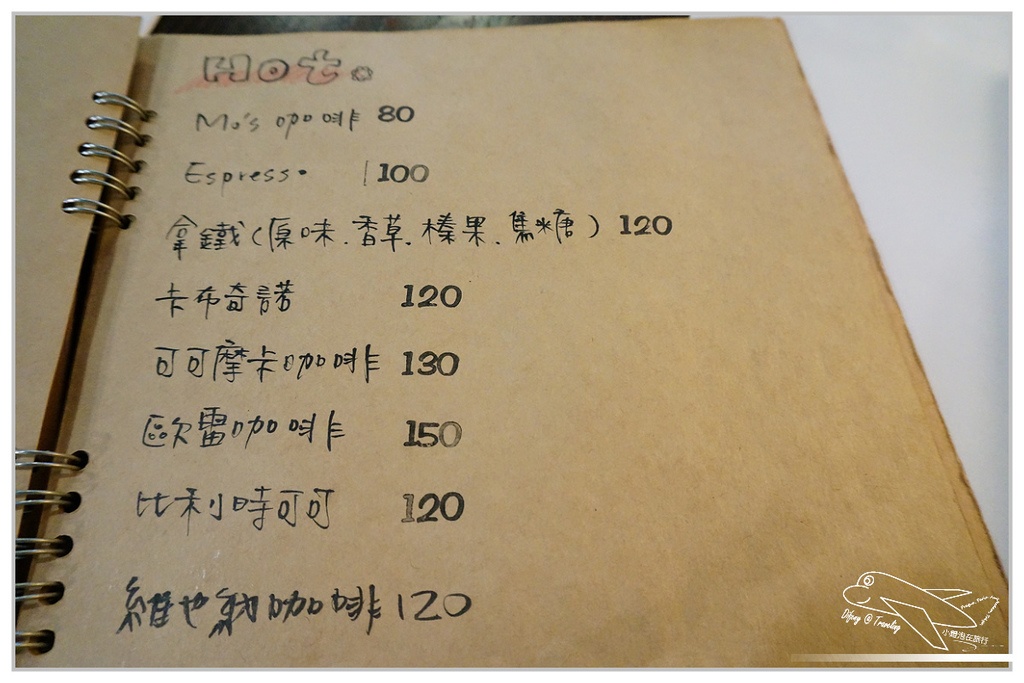 Hot.
Mo's 咖啡 80
Espresso 100
拿鐵(原味.香草.榛果.焦糖) 120
卡布奇諾 120
可可摩卡咖啡 130
歐雷咖啡 150
比利時可可 120
維也納咖啡 120
@ Traveling
小燈泡在旅行